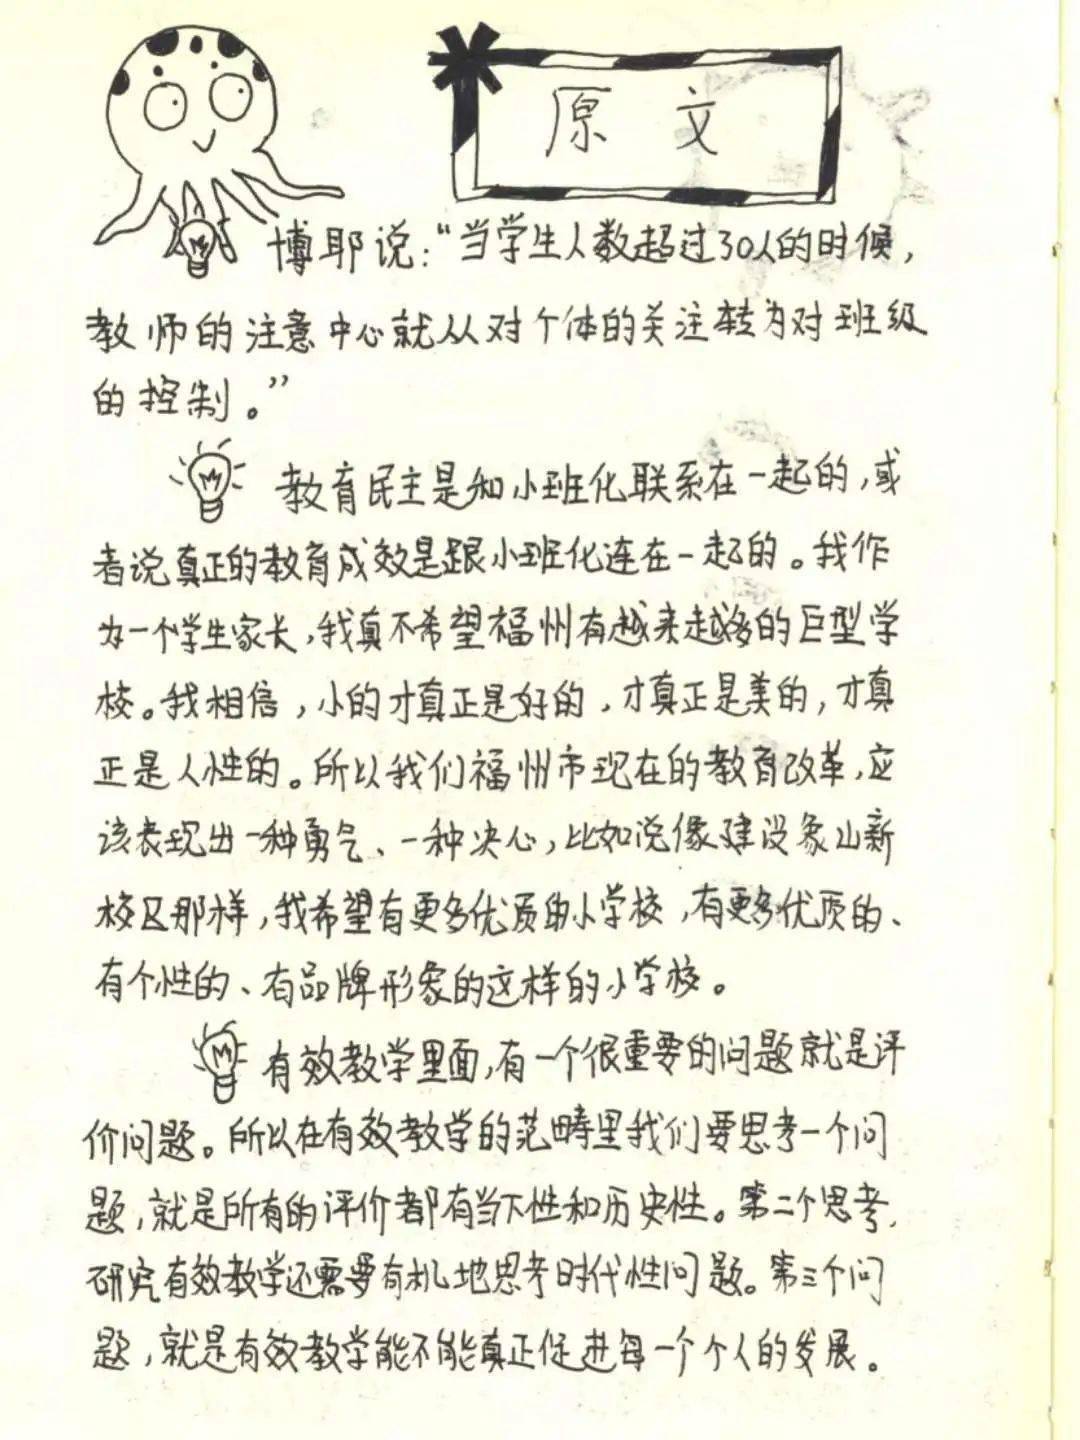 原文
博耶说：“当学生人数超过30人的时候，
教师的注意中心就从对个体的关注转为对班级
的控制。”
教育民主是和小班化联系在一起的，或
者说真正的教育成效是跟小班化连在一起的。我作
为一个学生家长，我真不希望福州有越来越多的巨型学
校。我相信，小的才真正是好的，才真正是美的，才真
正是人性的。所以我们福州市现在的教育改革，应
该表现出一种勇气、一种决心，比如说像建设象山新
校区那样，我希望有更多优质的小学校，有更多优质的、
有个性的、有品牌形象的这样的小学校。
有效教学里面，有一个很重要的问题就是评
价问题。所以在有效教学的范畴里我们要思考一个问
题，就是所有的评价者都有当下性和历史性。第二个思考，
研究有效教学还需要有机地思考时代性问题。第三个问
题，就是有效教学能不能真正促进每一个个人的发展。